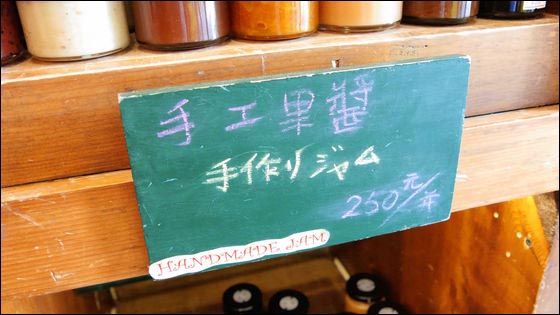 手工果醬
手作りジャム
250元/瓶
HANDMADE JAM